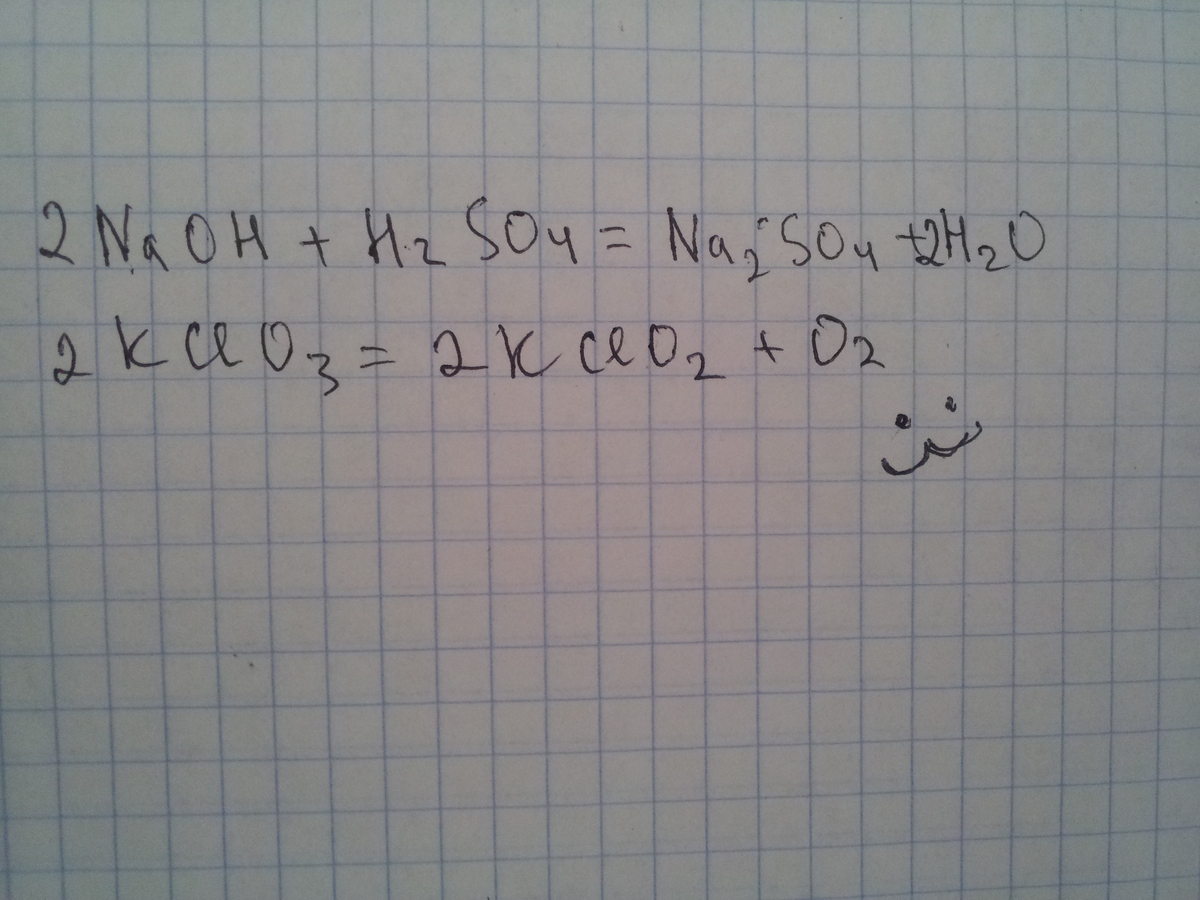 2NaOH + H₂SO₄ = Na₂SO₄ + 2H₂O
2KClO₃ = 2KClO₂ + O₂